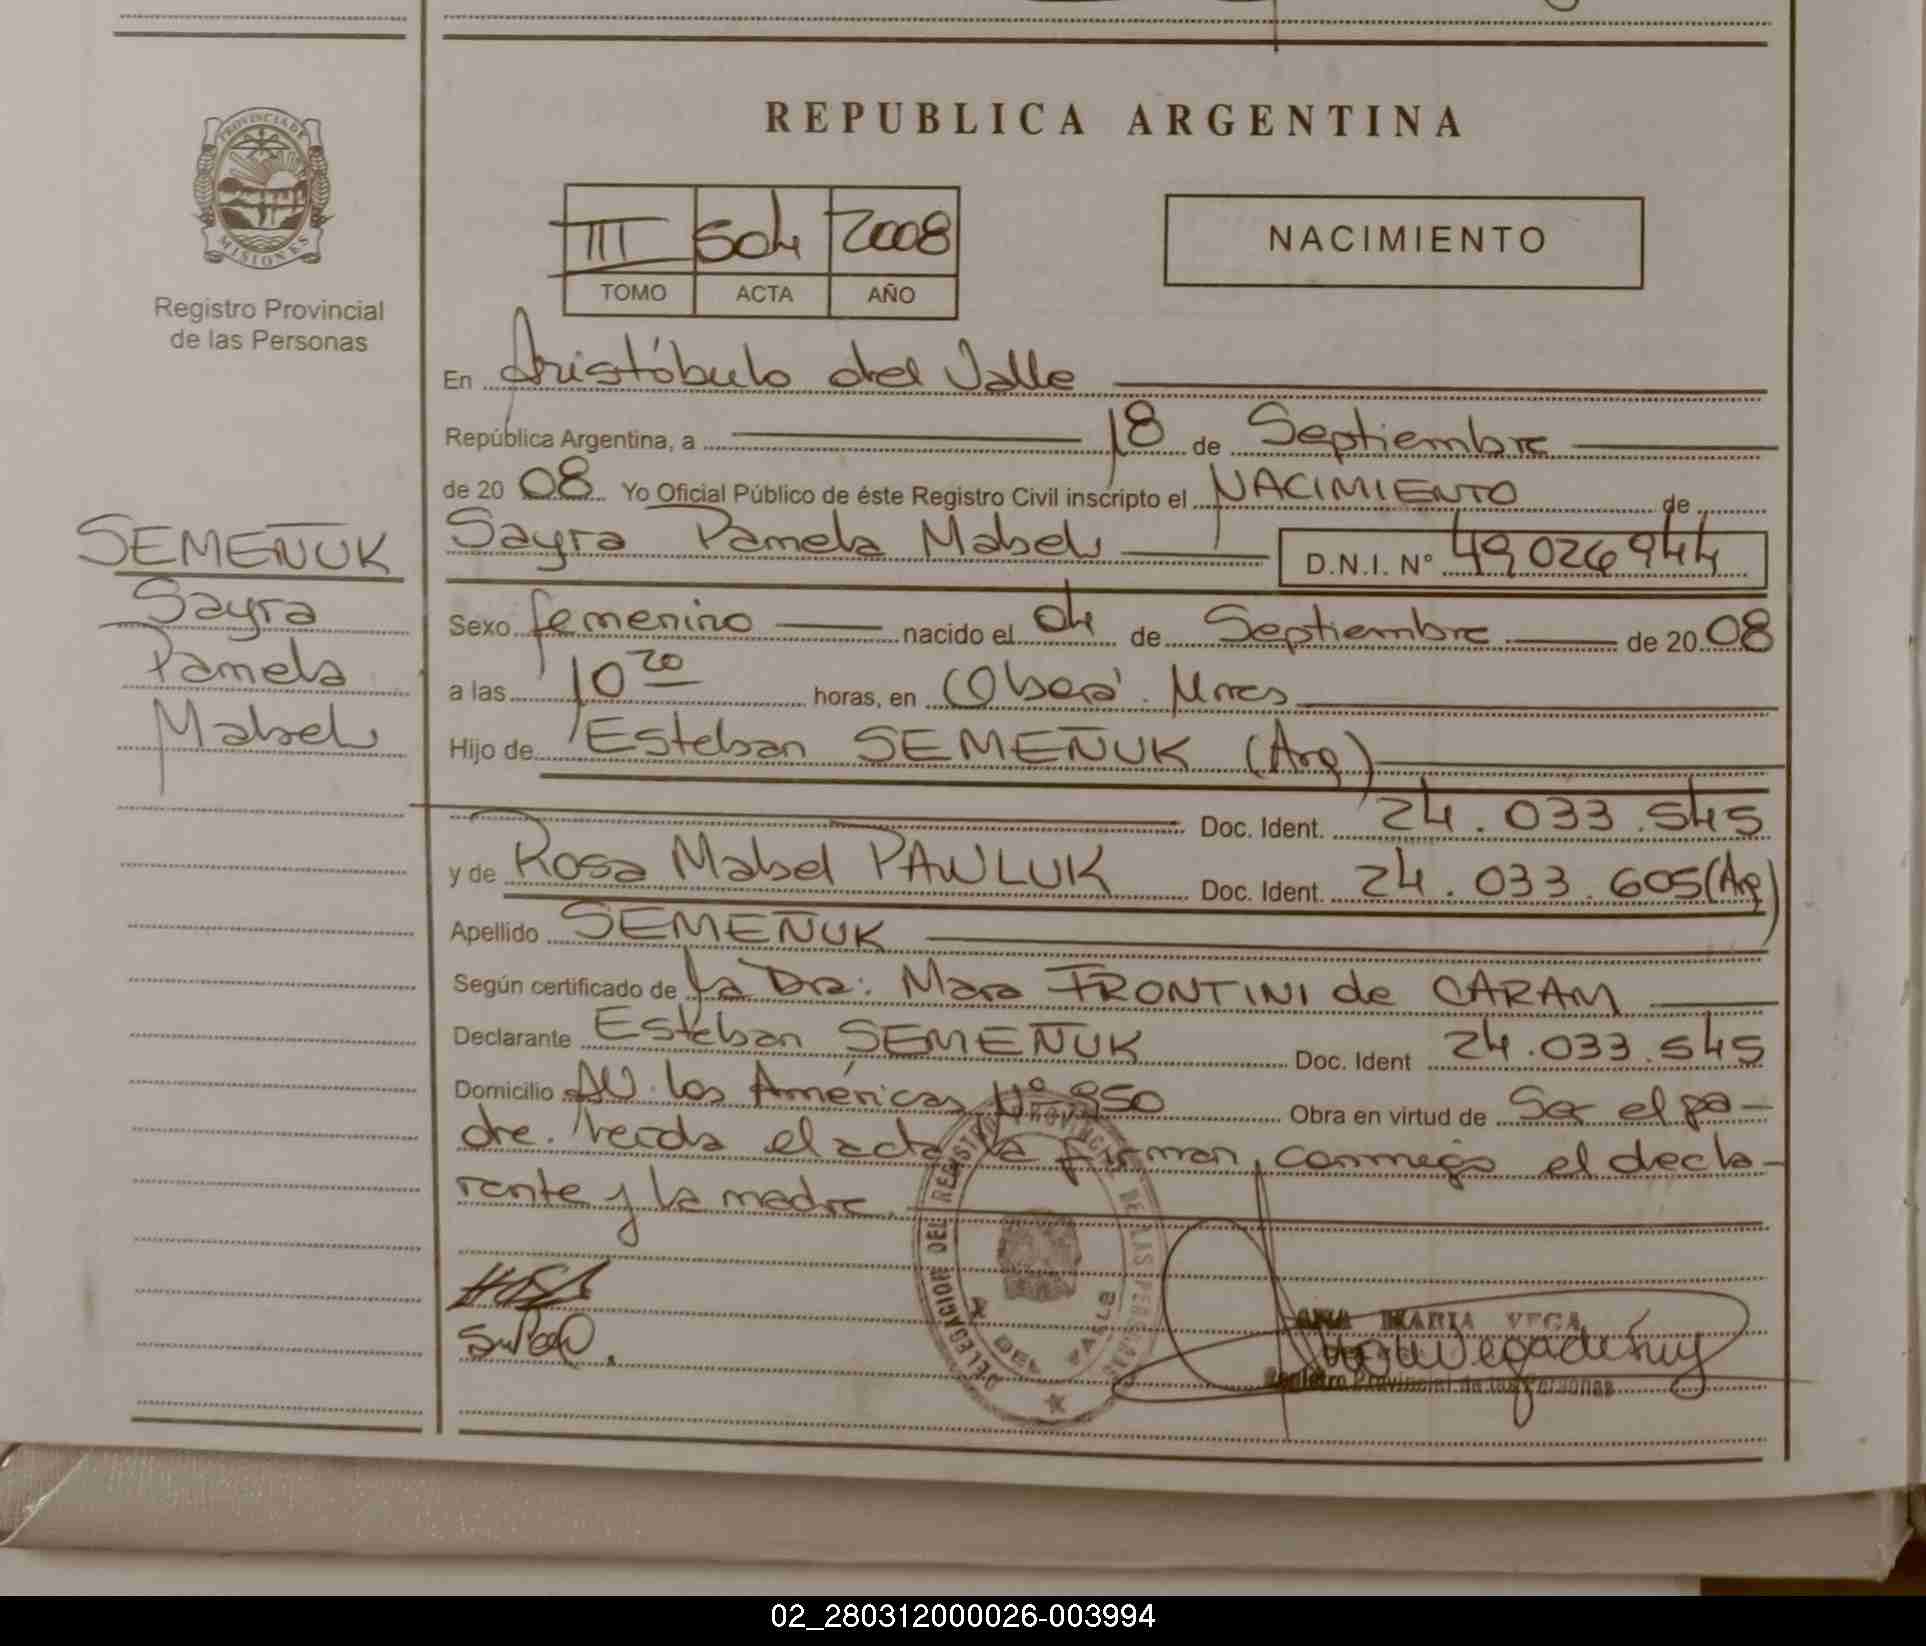 REPUBLICA ARGENTINA
PROVINCIA DE MISIONES
Registro Provincial
de las Personas
III 504 2008
TOMO ACTA AÑO
NACIMIENTO
En Aristóbulo del Valle
República Argentina, a 18 de Septiembre
de 2008 Yo Oficial Público de éste Registro Civil inscripto el NACIMIENTO de
Sayra Pamela Mabel D.N.I. N° 49026944
SEMEÑUK
Sayra
Pamela
Mabel
Sexo femenino nacido el 04 de Septiembre de 2008
a las 10 20 horas, en Oberá. Mnes
Hijo de Esteban SEMEÑUK (Arg)
Doc. Ident. 24.033.545
y de Rosa Mabel PAWLUK Doc. Ident. 24.033.605 (Arg)
Apellido SEMEÑUK
Según certificado de la Dra: Mara FRONTINI de CARAM
Declarante Esteban SEMEÑUK Doc. Ident 24.033.545
Domicilio AV. las Américas N° 950 Obra en virtud de Ser el pa-
dre. Leída el acta la firman, conmigo el decla-
rante y la madre.
DELEGACION DEL REGISTRO PROVINCIAL DE LAS PERSONAS
VALLE
ANA MARIA VEGA
Registro Provincial de las Personas
02_280312000026-003994